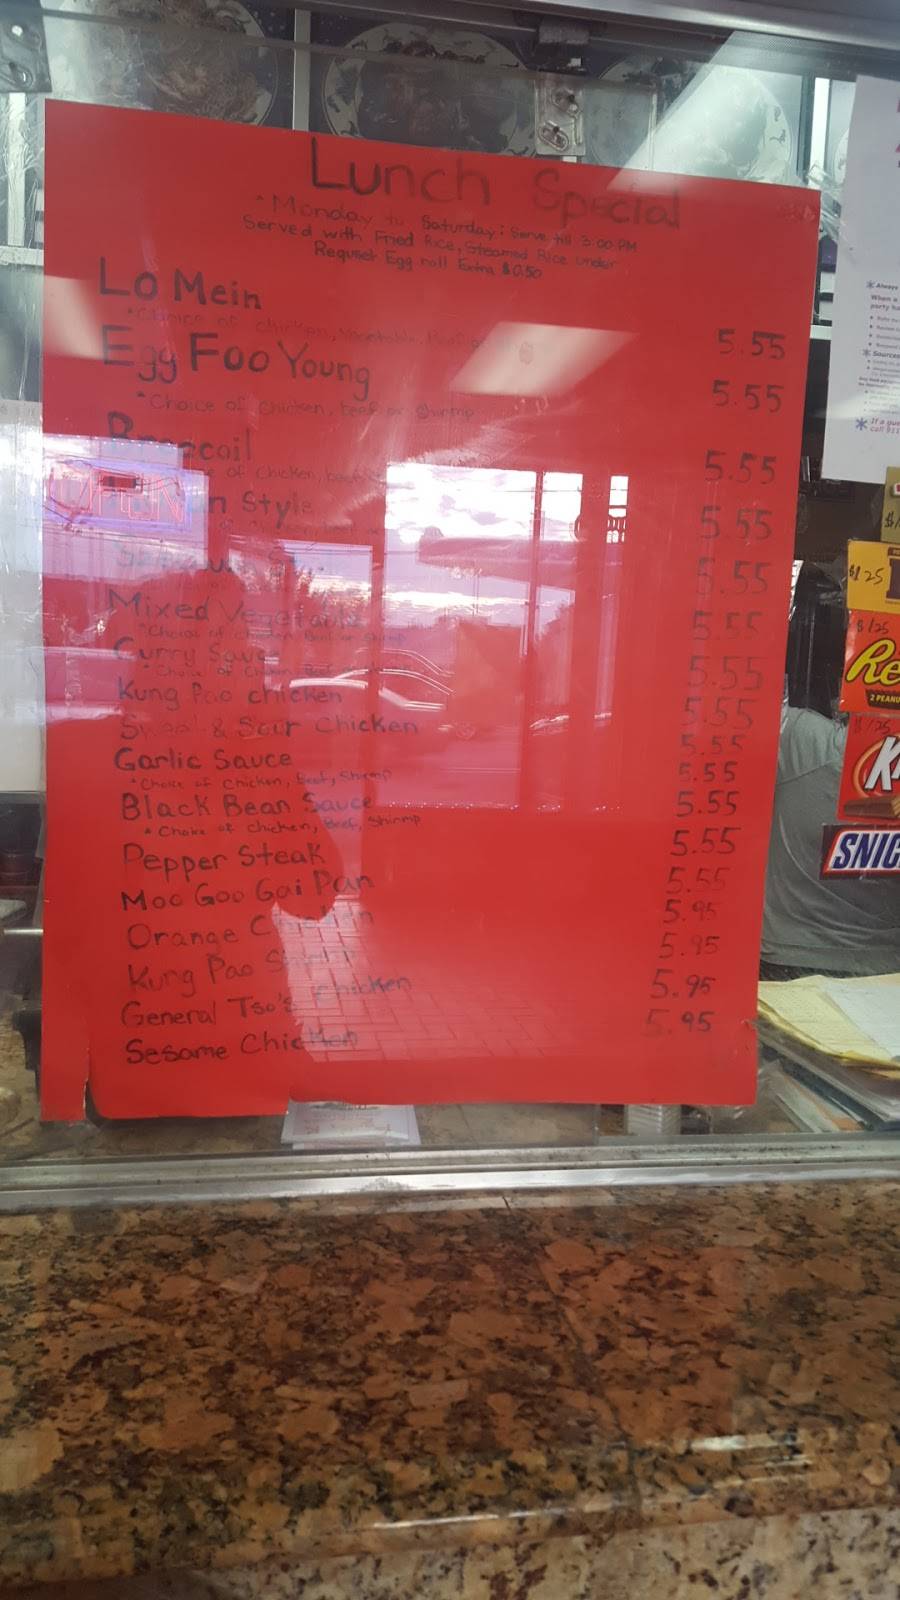 Lunch Special
*Monday to Saturday: Serve till 3:00 PM
Served with Fried Rice, Steamed Rice under
Request Egg roll Extra $0.50
Lo Mein
*Choice of chicken, Vegetable, Beef or
5.55
Egg Foo Young
5.55
*Choice of Chicken, beef or Shrimp
Broccoil
5.55
of Chicken, beef
Style
5.55
5.55
Mixed Vegetable
5.55
*Choice of Chicken Beef or Shrimp
Curry Sauce
5.55
*Choice of Chicken Beef
Kung Pao chicken
5.55
Sweet & Sour Chicken
5.55
Garlic Sauce
5.55
*Choice of Chicken, Beef, Shrimp
Black Bean Sauce
5.55
*Choice of Chicken, Beef, Shirmp
Pepper Steak
5.55
Moo Goo Gai Pan
5.55
Orange Chicken
5.95
Kung Pao Shrimp
5.95
General Tso's Chicken
5.95
Sesame Chicken
5.95
*Always
When a
party ha
*Sources
*If a gue
call 911
$1.25
Re
2 PEANU
K
SNIC